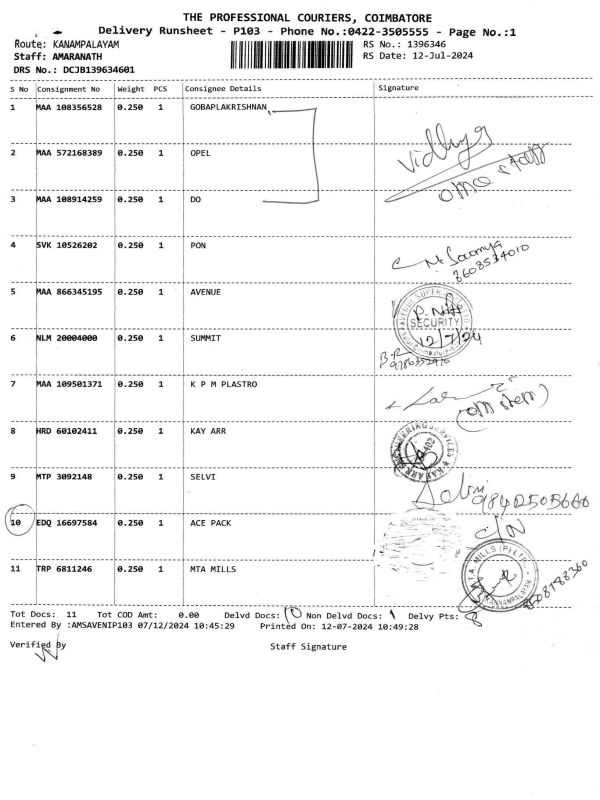 THE PROFESSIONAL COURIERS, COIMBATORE
Delivery Runsheet - P103 - Phone No.:0422-3505555 - Page No.:1
Route: KANAMPALAYAM
RS No.: 1396346
Staff: AMARANATH
RS Date: 12-Jul-2024
DRS No.: DCJB139634601
S No Consignment No Weight PCS Consignee Details Signature
1 MAA 108356528 0.250 1 GOBAPLAKRISHNAN
2 MAA 572168389 0.250 1 OPEL Vidhya
office staff
3 MAA 108914259 0.250 1 DO
4 SVK 10526202 0.250 1 PON M. Sowmya
8608534010
5 MAA 866345195 0.250 1 AVENUE
SECURITY
6 NLM 20004000 0.250 1 SUMMIT 12/7/24
7 MAA 109501371 0.250 1 K P M PLASTRO
8 HRD 60102411 0.250 1 KAY ARR
9 MTP 3092148 0.250 1 SELVI
10 EDQ 16697584 0.250 1 ACE PACK C/N
11 TRP 6811246 0.250 1 MTA MILLS
Tot Docs: 11 Tot COD Amt: 0.00 Delvd Docs: 10 Non Delvd Docs: 1 Delvy Pts: 8
Entered By :AMSAVENIP103 07/12/2024 10:45:29 Printed On: 12-07-2024 10:49:28
Verified By Staff Signature